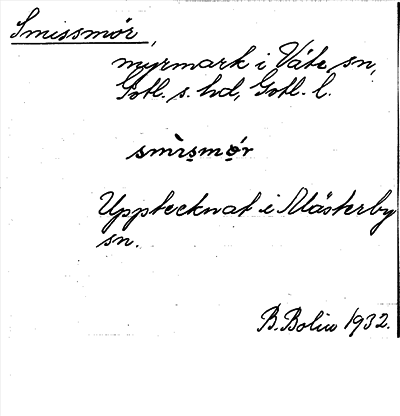 Smissmör,
myrmark i Väte sn,
Gotl. s. hd, Gotl. l.
smìsmọ́r
Upptecknat i Mästerby
sn.
B. Bolin 1932.